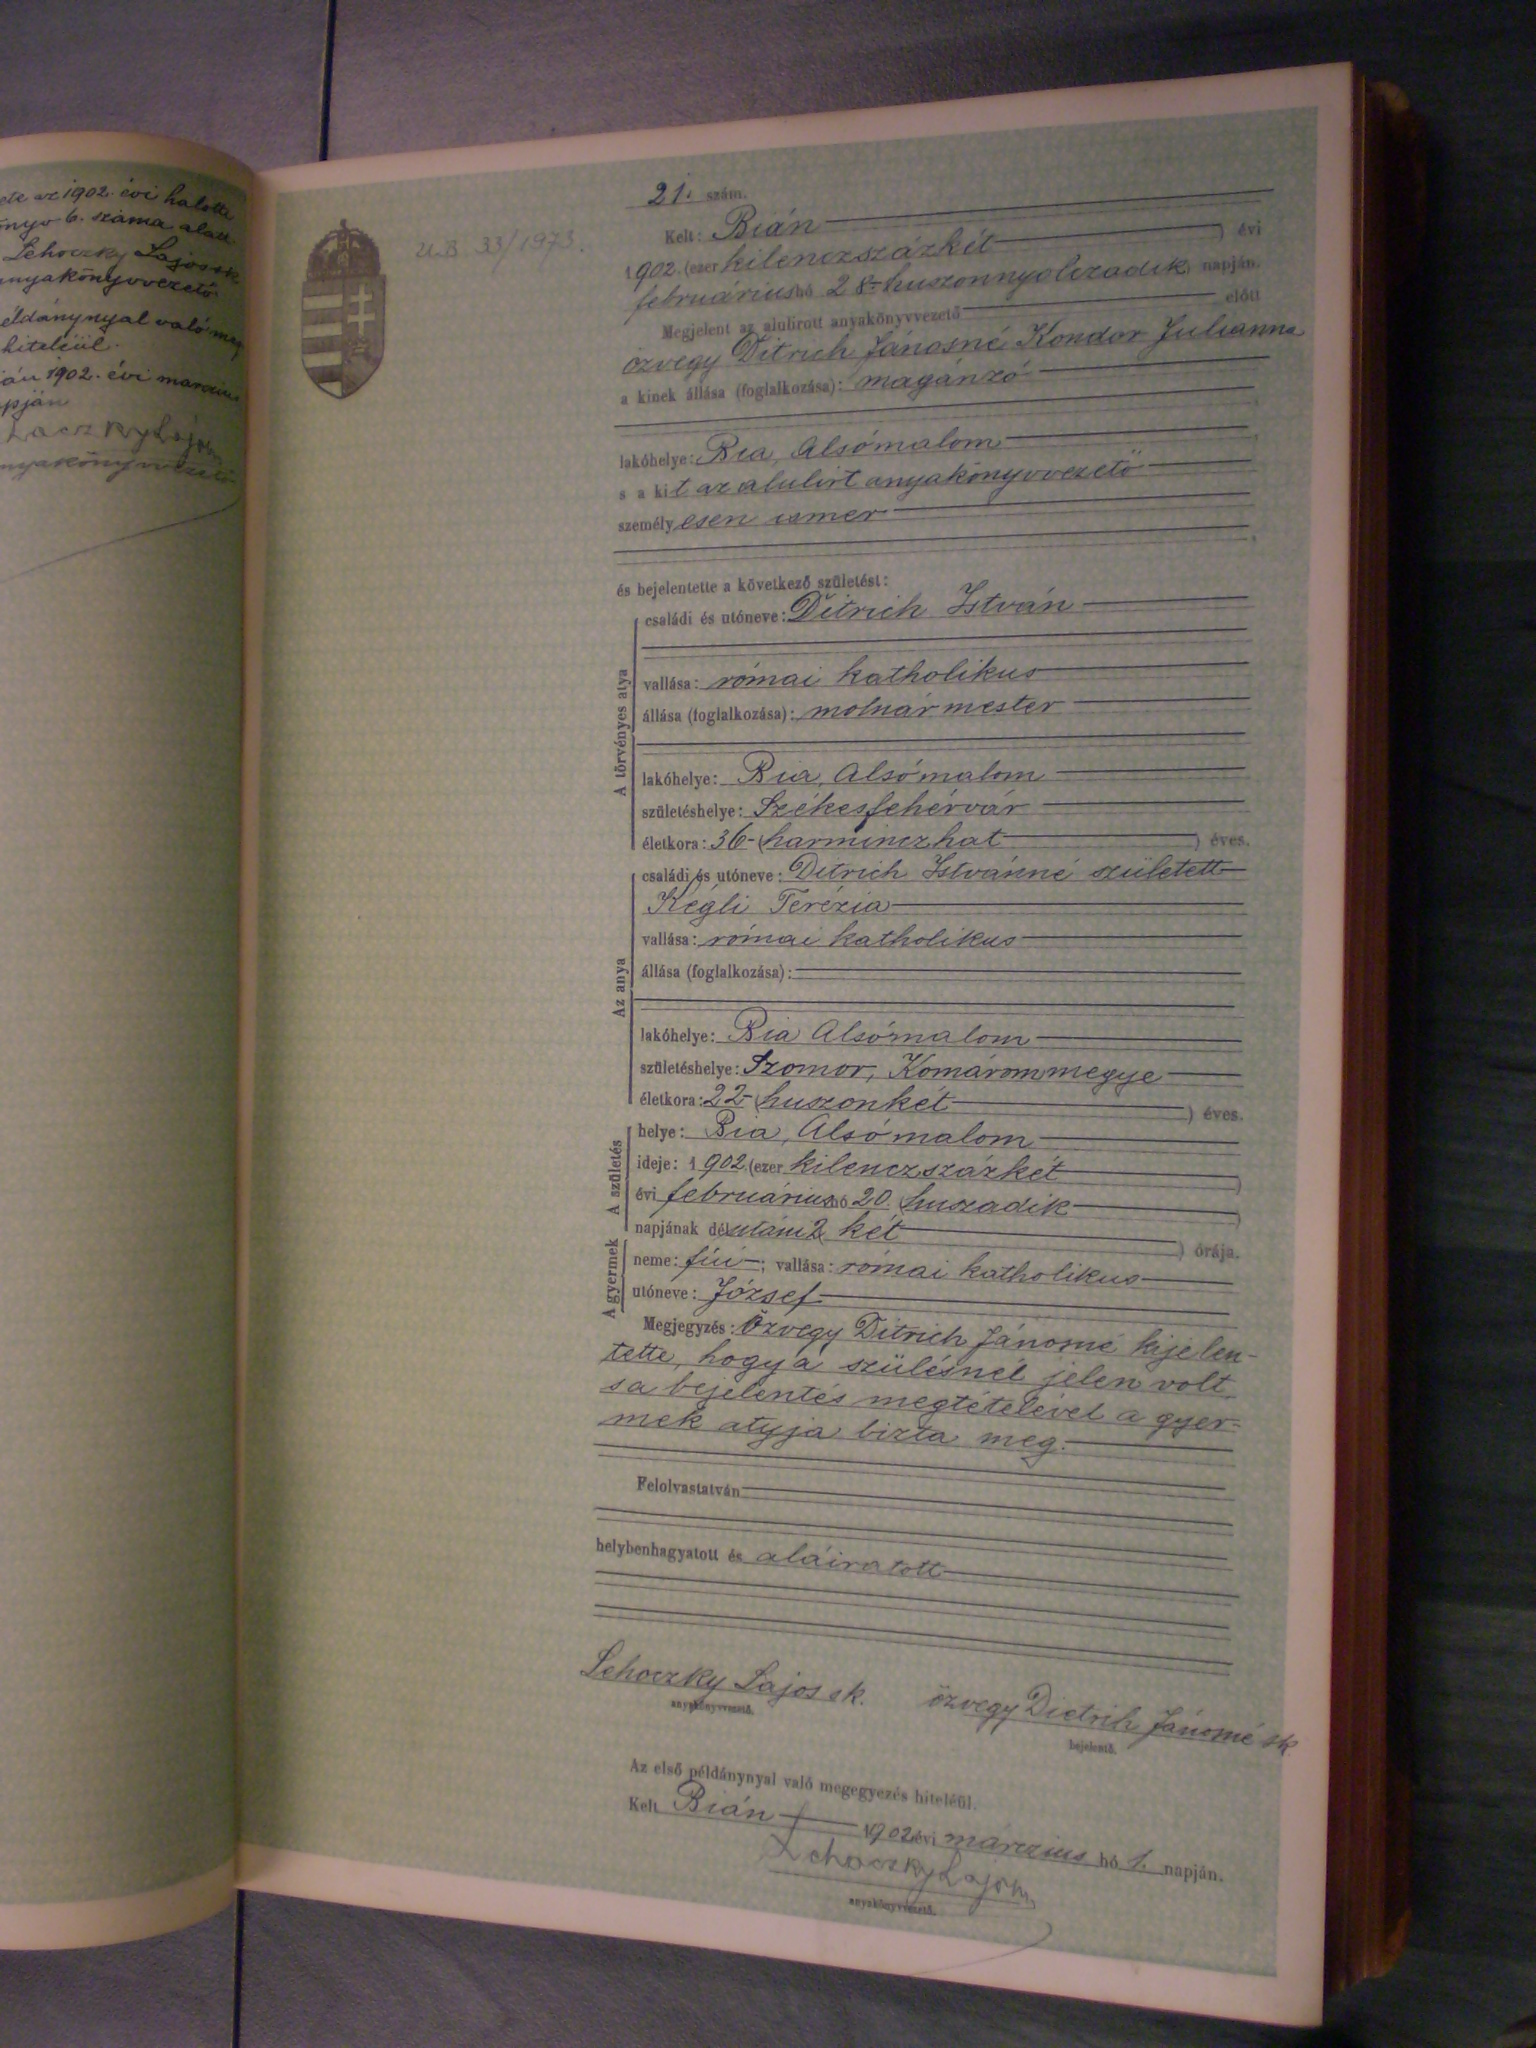 1902. évi halotti
6. száma alatt
Lehoczky Lajos sk
anyakönyvvezető
való meg
hiteléül.
1902. évi márczius
napján
anyakönyvvezető
U.B 33/1973.
21. szám.
Kelt: Bián
1902. (ezer kilenczszázkét) évi
februárius hó 28 huszonnyolczadik) napján.
Megjelent az alulirott anyakönyvvezető előtt
özvegy Ditrich Jánosné Kondor Julianna
a kinek állása (foglalkozása): magánzó
lakóhelye: Bia, Alsómalom
s a kit az alulirt anyakönyvvezető
személyesen ismer
és bejelentette a következő születést:
A törvényes atya
családi és utóneve: Ditrich István
vallása: római katholikus
állása (foglalkozása): molnár mester
lakóhelye: Bia, Alsómalom
születéshelye: Székesfehérvár
életkora: 36 (harminczhat) éves.
Az anya
családi és utóneve: Ditrich Istvánné született
Kégli Terézia
vallása: római katholikus
állása (foglalkozása):
lakóhelye: Bia Alsómalom
születéshelye: Szomor, Komárommegye
életkora: 22 (huszonkét) éves.
A születés
helye: Bia, Alsómalom
ideje: 1902. (ezer kilenczszázkét)
évi februárius hó 20. (huszadik)
napjának délutáni 2 (két) órája.
A gyermek
neme: fiú; vallása: római katholikus
utóneve: József
Megjegyzés: Özvegy Ditrich Jánosné kijelen-
tette, hogy a szülésnél jelen volt
s a bejelentés megtételével a gyer-
mek atyja bízta meg.
Felolvastatván
helybenhagyatott és aláiratott
Lehoczky Lajos sk. özvegy Dietrich Jánosné sk.
anyakönyvvezető. bejelentő.
Az első példánynyal való megegyezés hiteléül.
Kelt Bián 1902 évi márczius hó 1. napján.
Lehoczky Lajos
anyakönyvvezető.